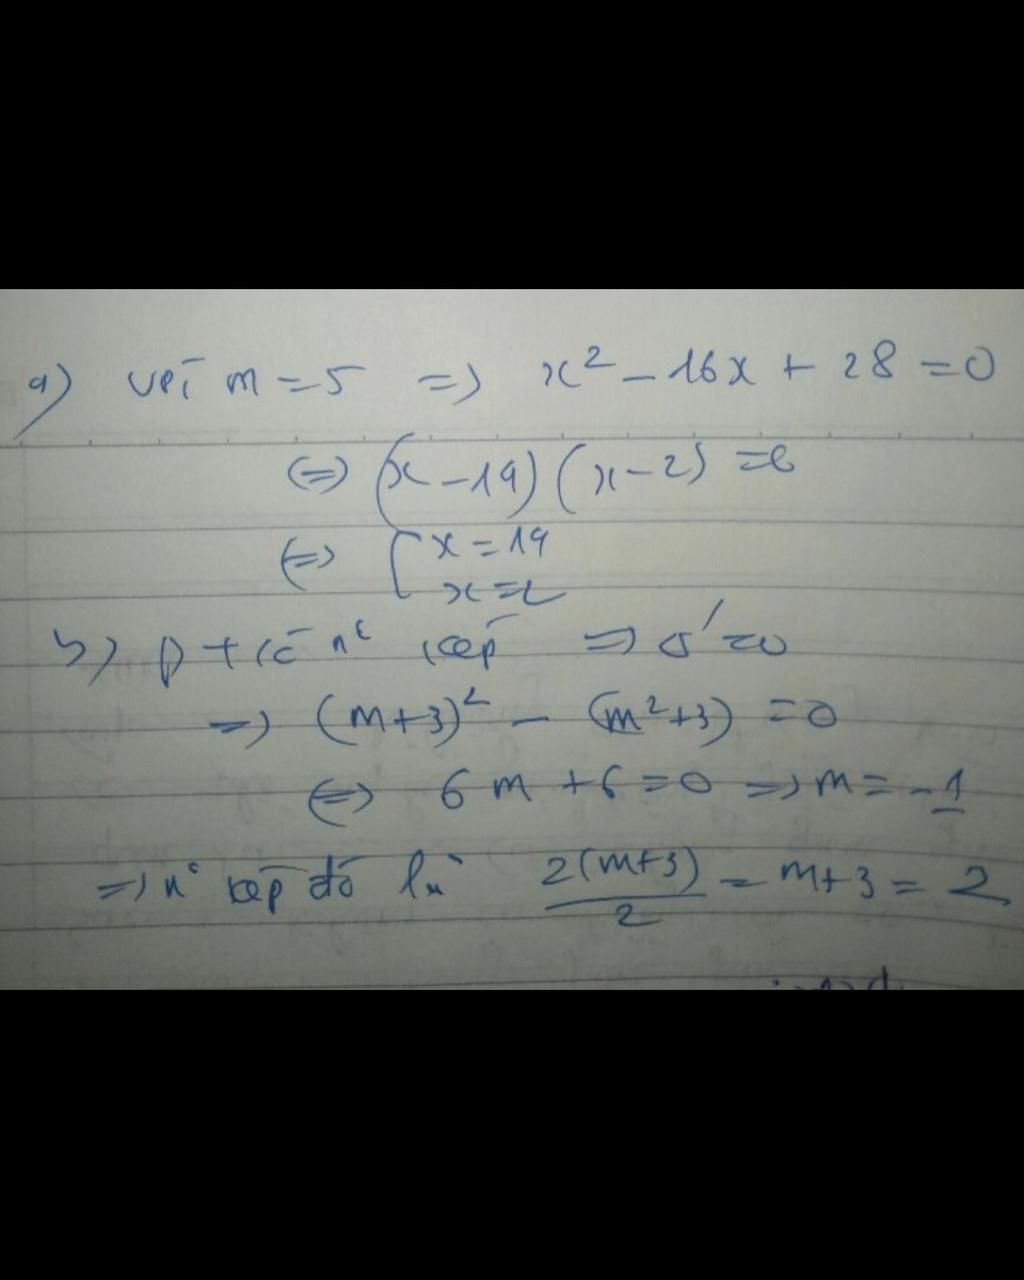 a) với m = 5 => x² - 16x + 28 = 0
<=> (x - 14) (x - 2) = 0
<=> [ x = 14
x = 2
b) pt có n° kép => Δ' = 0
=> (m+3)² - (m²+3) = 0
<=> 6m + 6 = 0 => m = -1
=> n° kép đó là 2(m+3)/2 = m+3 = 2